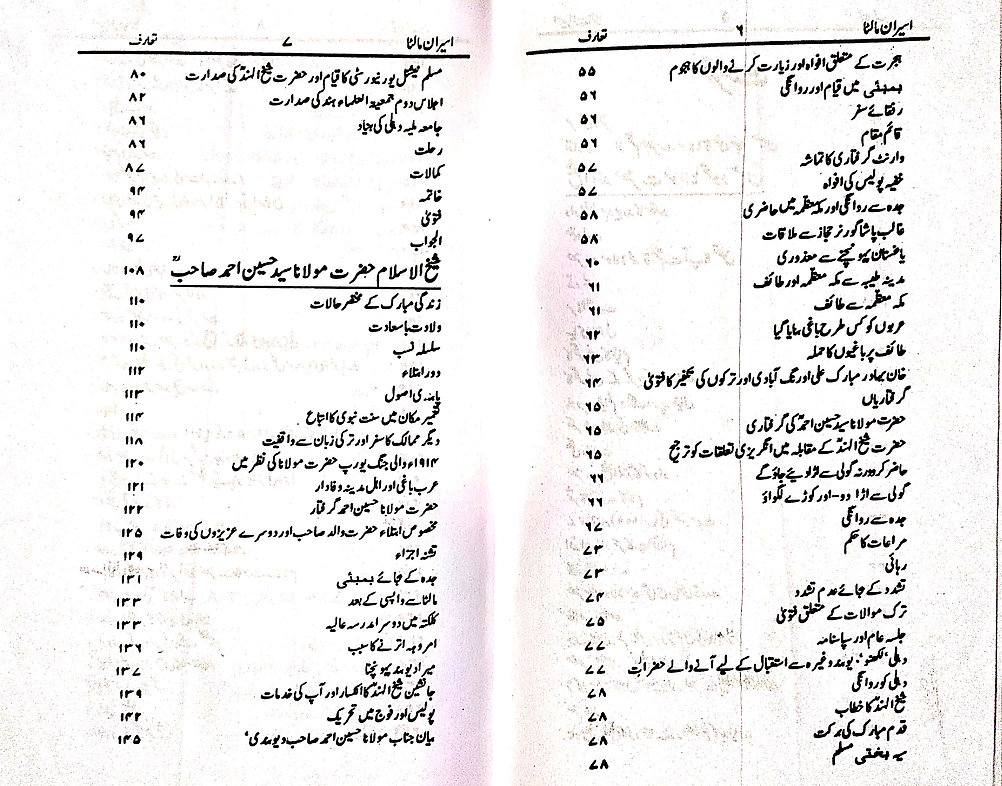 اسیران مالٹا ۶ تعارف
ہجرت کے متعلق افواہ اور زیارت کرنے والوں کا ہجوم ۵۵
بمبئی میں قیام اور روانگی ۵۶
رفقائے سفر ۵۶
قائم مقام ۵۶
وارنٹ گرفتاری کا تماشہ ۵۷
خفیہ پولیس کی افواہ ۵۷
جدہ سے روانگی اور مکہ معظمہ میں حاضری ۵۸
غالب پاشا گورنر حجاز سے ملاقات ۵۸
یاغستان پہونچنے سے معذوری ۶۰
مدینہ طیبہ سے مکہ معظمہ اور طائف ۶۱
مکہ معظمہ سے طائف ۶۱
عربوں کو کس طرح باغی بنایا گیا ۶۲
طائف پر باغیوں کا حملہ ۶۳
خان بہادر مبارک علی اورنگ آبادی اور ترکوں کی تکفیر کا فتویٰ ۶۴
گرفتاریاں ۶۵
حضرت مولانا سید حسین احمدؒ کی گرفتاری ۶۵
حضرت شیخ الہندؒ کے مقابلہ میں انگریزی تعلقات کو ترجیح ۶۵
حاضر کرو ورنہ گولی سے اڑا دیئے جاؤ گے ۶۶
گولی سے اڑا دو-اور کوڑے لگواؤ ۶۶
جدہ سے روانگی ۶۷
مراعات کا حکم ۷۳
رہائی ۷۳
تشدد کے بجائے عدم تشدد ۷۴
ترک موالات کے متعلق فتویٰ ۷۵
جلسہ عام اور سپاسنامہ ۷۷
دہلی، لکھنؤ، دیوبند وغیرہ سے استقبال کے لیے آنے والے حضرات ۷۷
دہلی کو روانگی ۷۸
شیخ الہندؒ کا خطاب ۷۸
قدم مبارک کی برکت ۷۸
سیہ بختی مسلم ۷۸
اسیران مالٹا ۷ تعارف
مسلم نیشنل یونیورسٹی کا قیام اور حضرت شیخ الہندؒ کی صدارت ۸۰
اجلاس دوم جمعیۃ العلماء ہند کی صدارت ۸۲
جامعہ ملیہ دہلی کی بنیاد ۸۶
رحلت ۸۶
کمالات ۸۷
خاتمہ ۹۴
فتویٰ ۹۴
الجواب ۹۷
شیخ الاسلام حضرت مولانا سید حسین احمد صاحبؒ ۱۰۸
زندگی مبارک کے مختصر حالات ۱۱۰
ولادت باسعادت ۱۱۰
سلسلہ نسب ۱۱۰
دور ابتلاء ۱۱۲
پابندی اصول ۱۱۳
تعمیر مکان میں سنت نبوی کا اتباع ۱۱۴
دیگر ممالک کا سفر اور ترکی زبان سے واقفیت ۱۱۸
۱۹۱۴ء والی جنگ یورپ حضرت مولانا کی نظر میں ۱۲۰
عرب باغی اور اہل مدینہ وفادار ۱۲۱
حضرت مولانا حسین احمد گرفتار ۱۲۲
مخصوص ابتلاء حضرت والد صاحب اور دوسرے عزیزوں کی وفات ۱۲۵
تشنہ اجزاء ۱۲۹
جدہ کے بجائے بمبئی ۱۳۱
مالٹا سے واپسی کے بعد ۱۳۳
کلکتہ میں دوسرا مدرسہ عالیہ ۱۳۳
امروہہ اترنے کا سبب ۱۳۶
میرا دیوبند پہونچنا ۱۳۷
جانشین شیخ الہندؒ کا انکسار اور آپ کی خدمات ۱۳۹
پولیس اور فوج میں تحریک ۱۴۲
بیان جناب مولانا حسین احمد صاحب دیوبندی، ۱۴۵